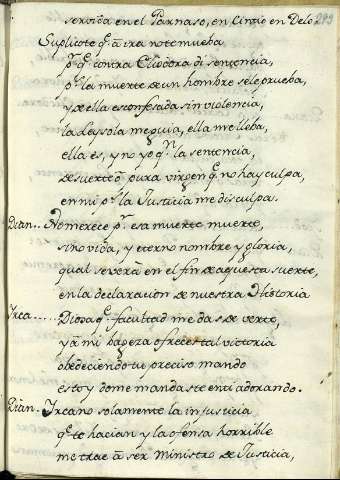 servida en el Parnaso, en Cintio en Delo. 293
Suplicote q̄ ā ira no te mueba
pr̄ q̄ contra Eliodora di sençoncia,
pr̄ la muerte de un hombre se le prueba,
y de ella es confesada sin violencia,
la ley sola me guia, ella me lleba,
ella es, y no yo qn̄ la sentencia,
de suerte ō pura virgen q̄ no hay culpa,
en mi pr̄ la Justicia me disculpa.
Dian.. No merece pr̄ esa muerte muerte,
sino vida, y eterno nombre y gloria,
qual se verā en el fin de aquesta suerte,
en la declaracion de nuestra Historia
Irca..... Diosa q̄ facultad me das de verte,
y ā mi baxeza ofreces tal victoria
obedeciendo tu preciso mando
estoy do me mandaste enti adorando.
Dian.. Ircano solamente la injusticia
q̄ te hacian y la ofensa horrible
me trae ā ser Ministro de Justicia,